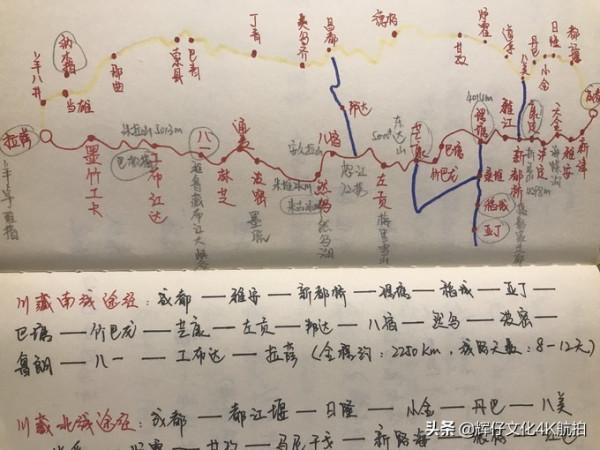 丁青
昌都
德格
甘孜
炉霍
道孚
丹巴
小金
日隆
八美
那曲
索县
巴青
类乌齐
羊八井
纳木错
当雄
邦达
拉萨
墨竹工卡
工布江达
八一
林芝
通麦
波密
然乌
八宿
左贡
芒康
巴塘
竹巴龙
理塘
雅江
新都桥
康定
泸定
天全
雅安
新津
成都
稻城
亚丁
米拉山 5013m
巴松错
雅鲁藏布江大峡谷
墨脱
米堆冰川
然乌湖
怒江
东达山
梅里雪山
海螺沟
川藏南线途经：成都—雅安—新都桥—理塘—稻城—亚丁—
巴塘—竹巴龙—芒康—左贡—邦达—八宿—然乌—波密—
鲁朗—八一—工布达—拉萨（全程约：2250km，我的天数：8-12天）
川藏北线途经：成都—都江堰—日隆—小金—丹巴—八美
炉霍—甘孜—马尼干戈—新路海—德格
头条 @辉仔文化4K航拍